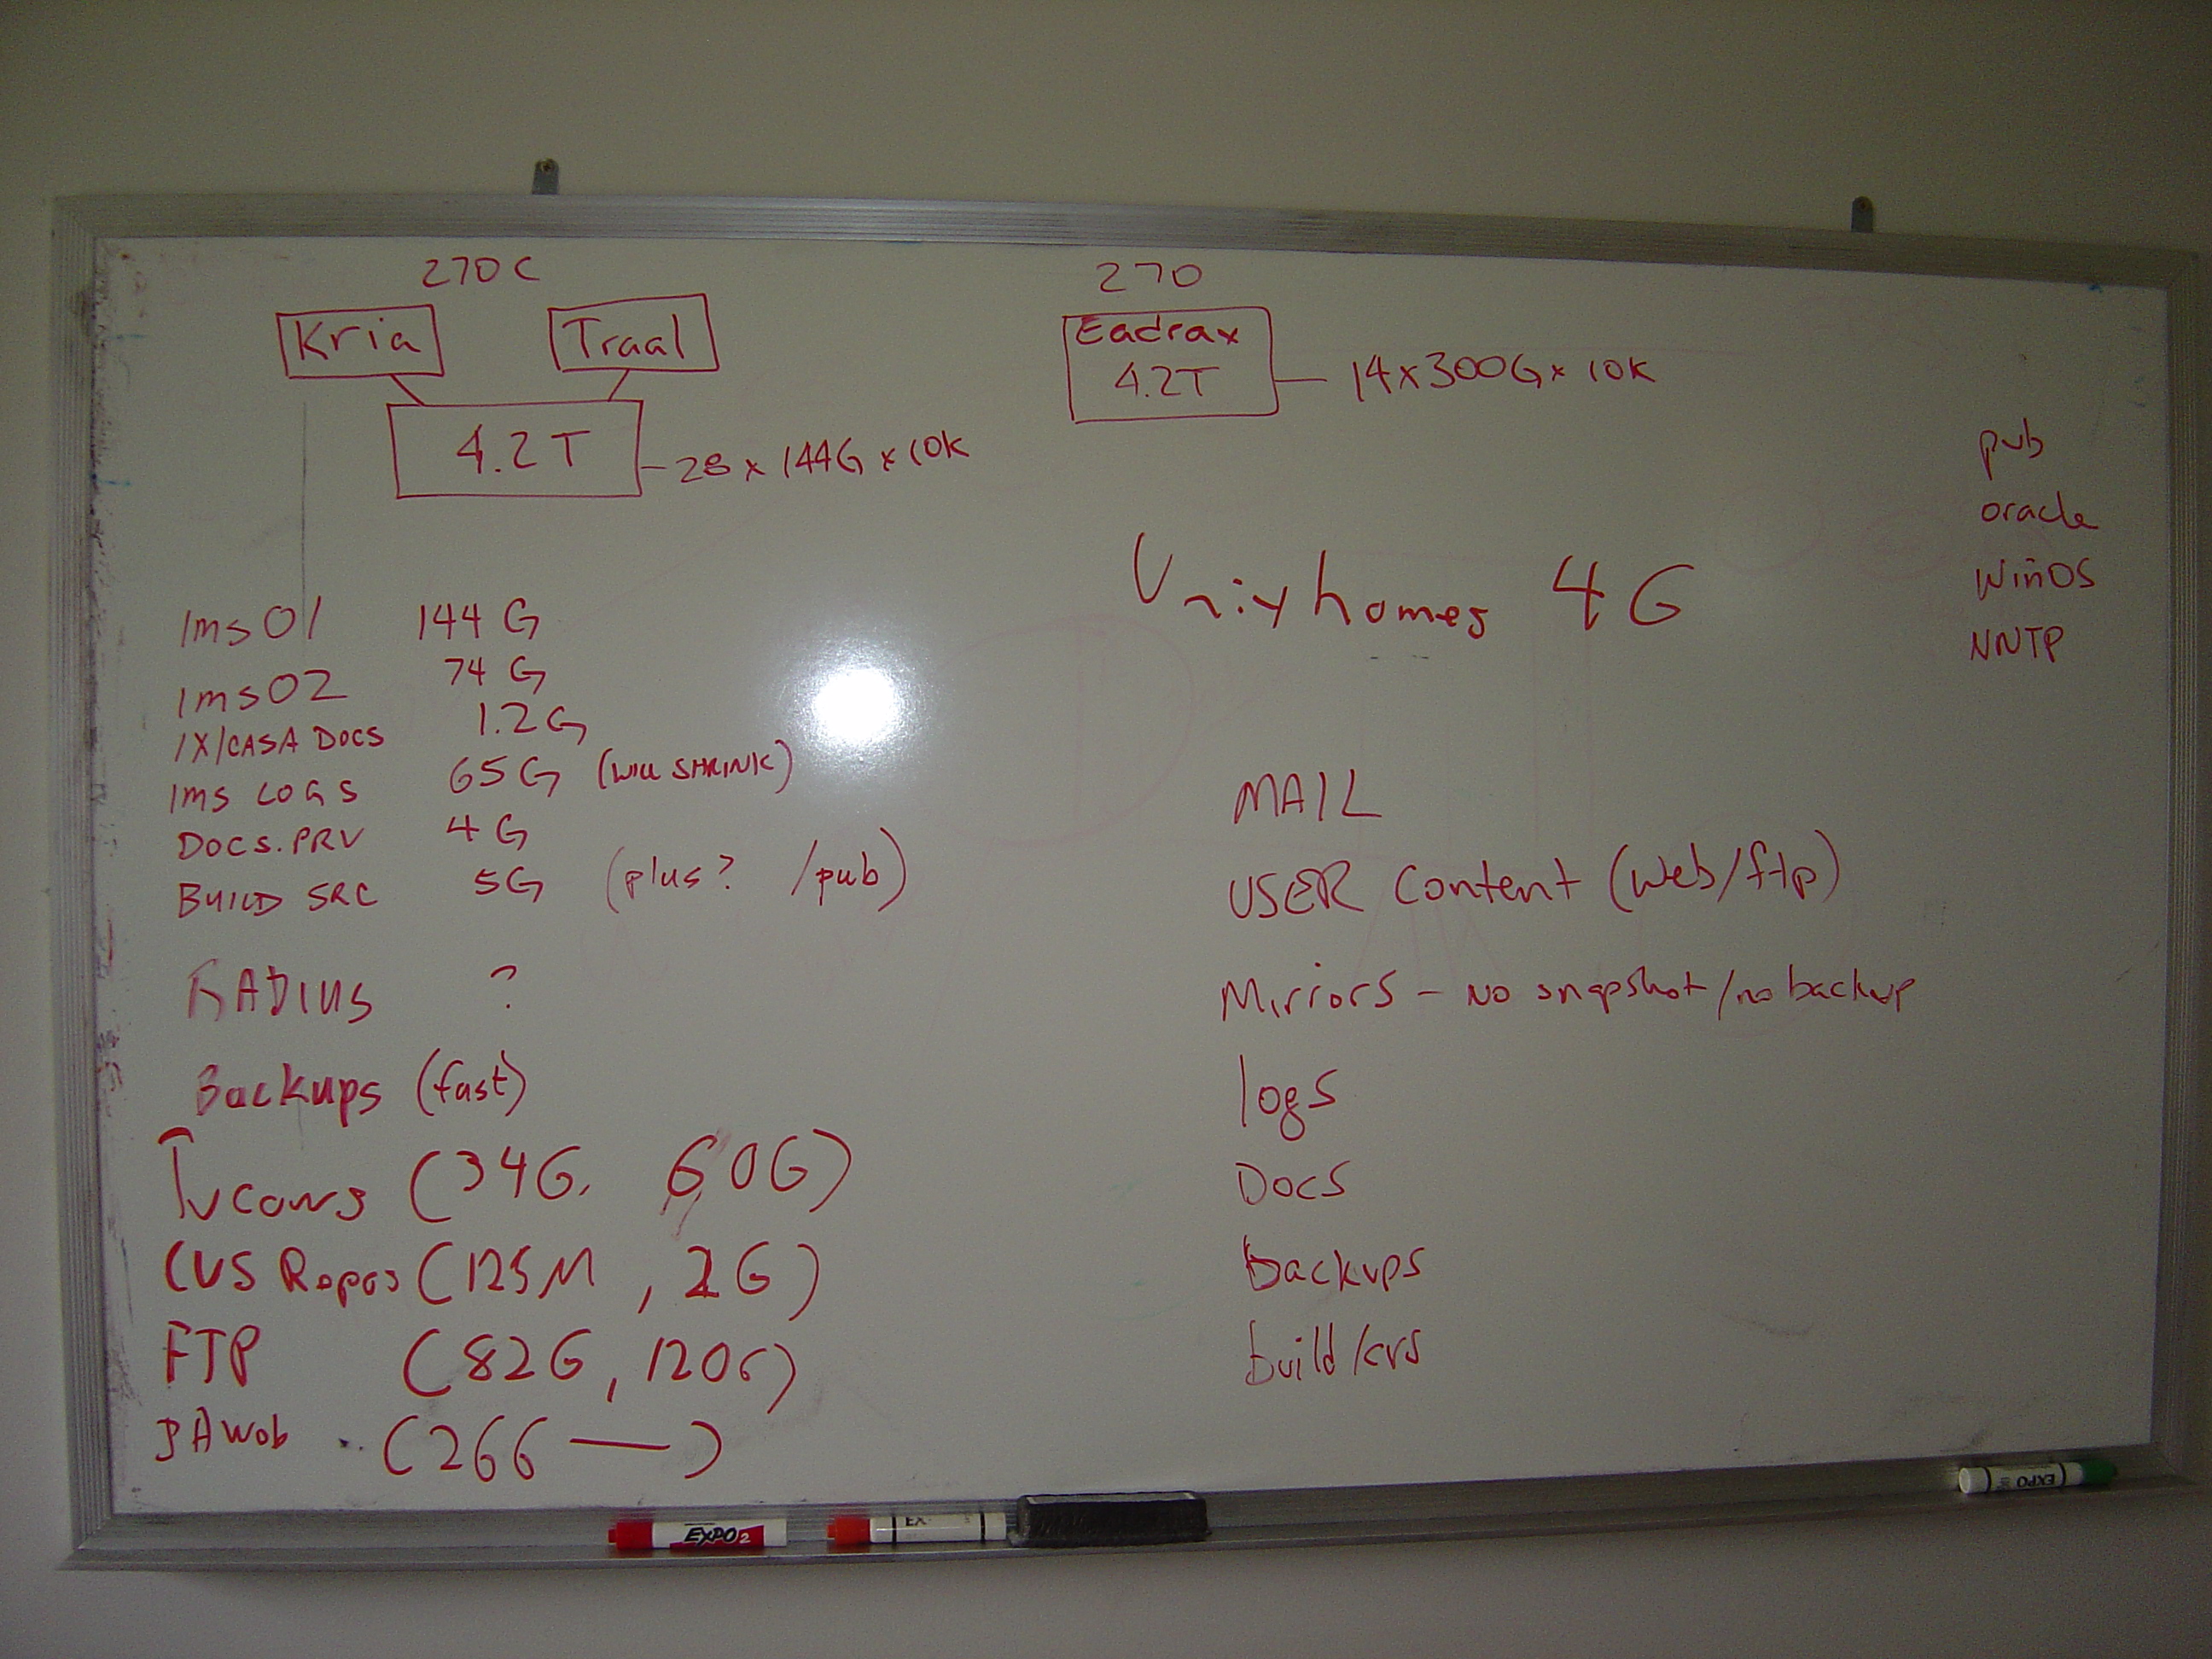 270C
Kria
Traal
4.2T
28 x 144G x 10K
270
Eadrax
4.2T
14x300Gx 10K
pub
oracle
WinOS
NNTP
Unixhomes 4G
ims01 144 G
ims02 74 G
IX/CASA DOCS 1.2G
IMS LOGS 65G (WILL SHRINK)
DOCS.PRV 4G
BUILD SRC 5G (plus? /pub)
RADIUS ?
Backups (fast)
Tucows (34G, 60G)
CVS Repos (125M, 2G)
FTP (82G, 120G)
(26G —)
MAIL
USER Content (web/ftp)
Mirrors - No snapshot/no backup
logs
Docs
backups
build/cvs
EXPO 2
EX
EXPO